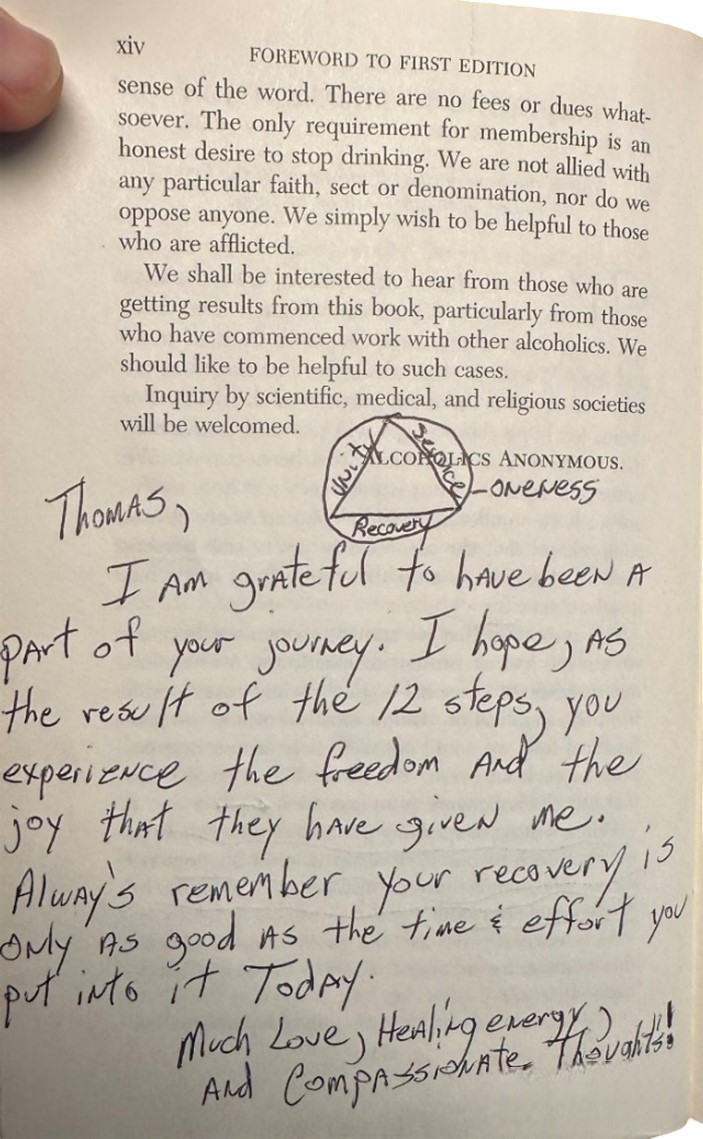 xiv FOREWORD TO FIRST EDITION
sense of the word. There are no fees or dues what-
soever. The only requirement for membership is an
honest desire to stop drinking. We are not allied with
any particular faith, sect or denomination, nor do we
oppose anyone. We simply wish to be helpful to those
who are afflicted.
We shall be interested to hear from those who are
getting results from this book, particularly from those
who have commenced work with other alcoholics. We
should like to be helpful to such cases.
Inquiry by scientific, medical, and religious societies
will be welcomed.
Unity
Service
ALCOHOLICS ANONYMOUS.
-ONENESS
Recovery
Thomas,
I AM grateful to have been A
part of your journey. I hope, AS
the result of the 12 steps, you
experience the freedom And the
joy that they have given me.
Alway's remember your recovery is
only AS good AS the time & effort you
put into it Today.
Much Love, Healing energy,
And Compassionate Thoughts!